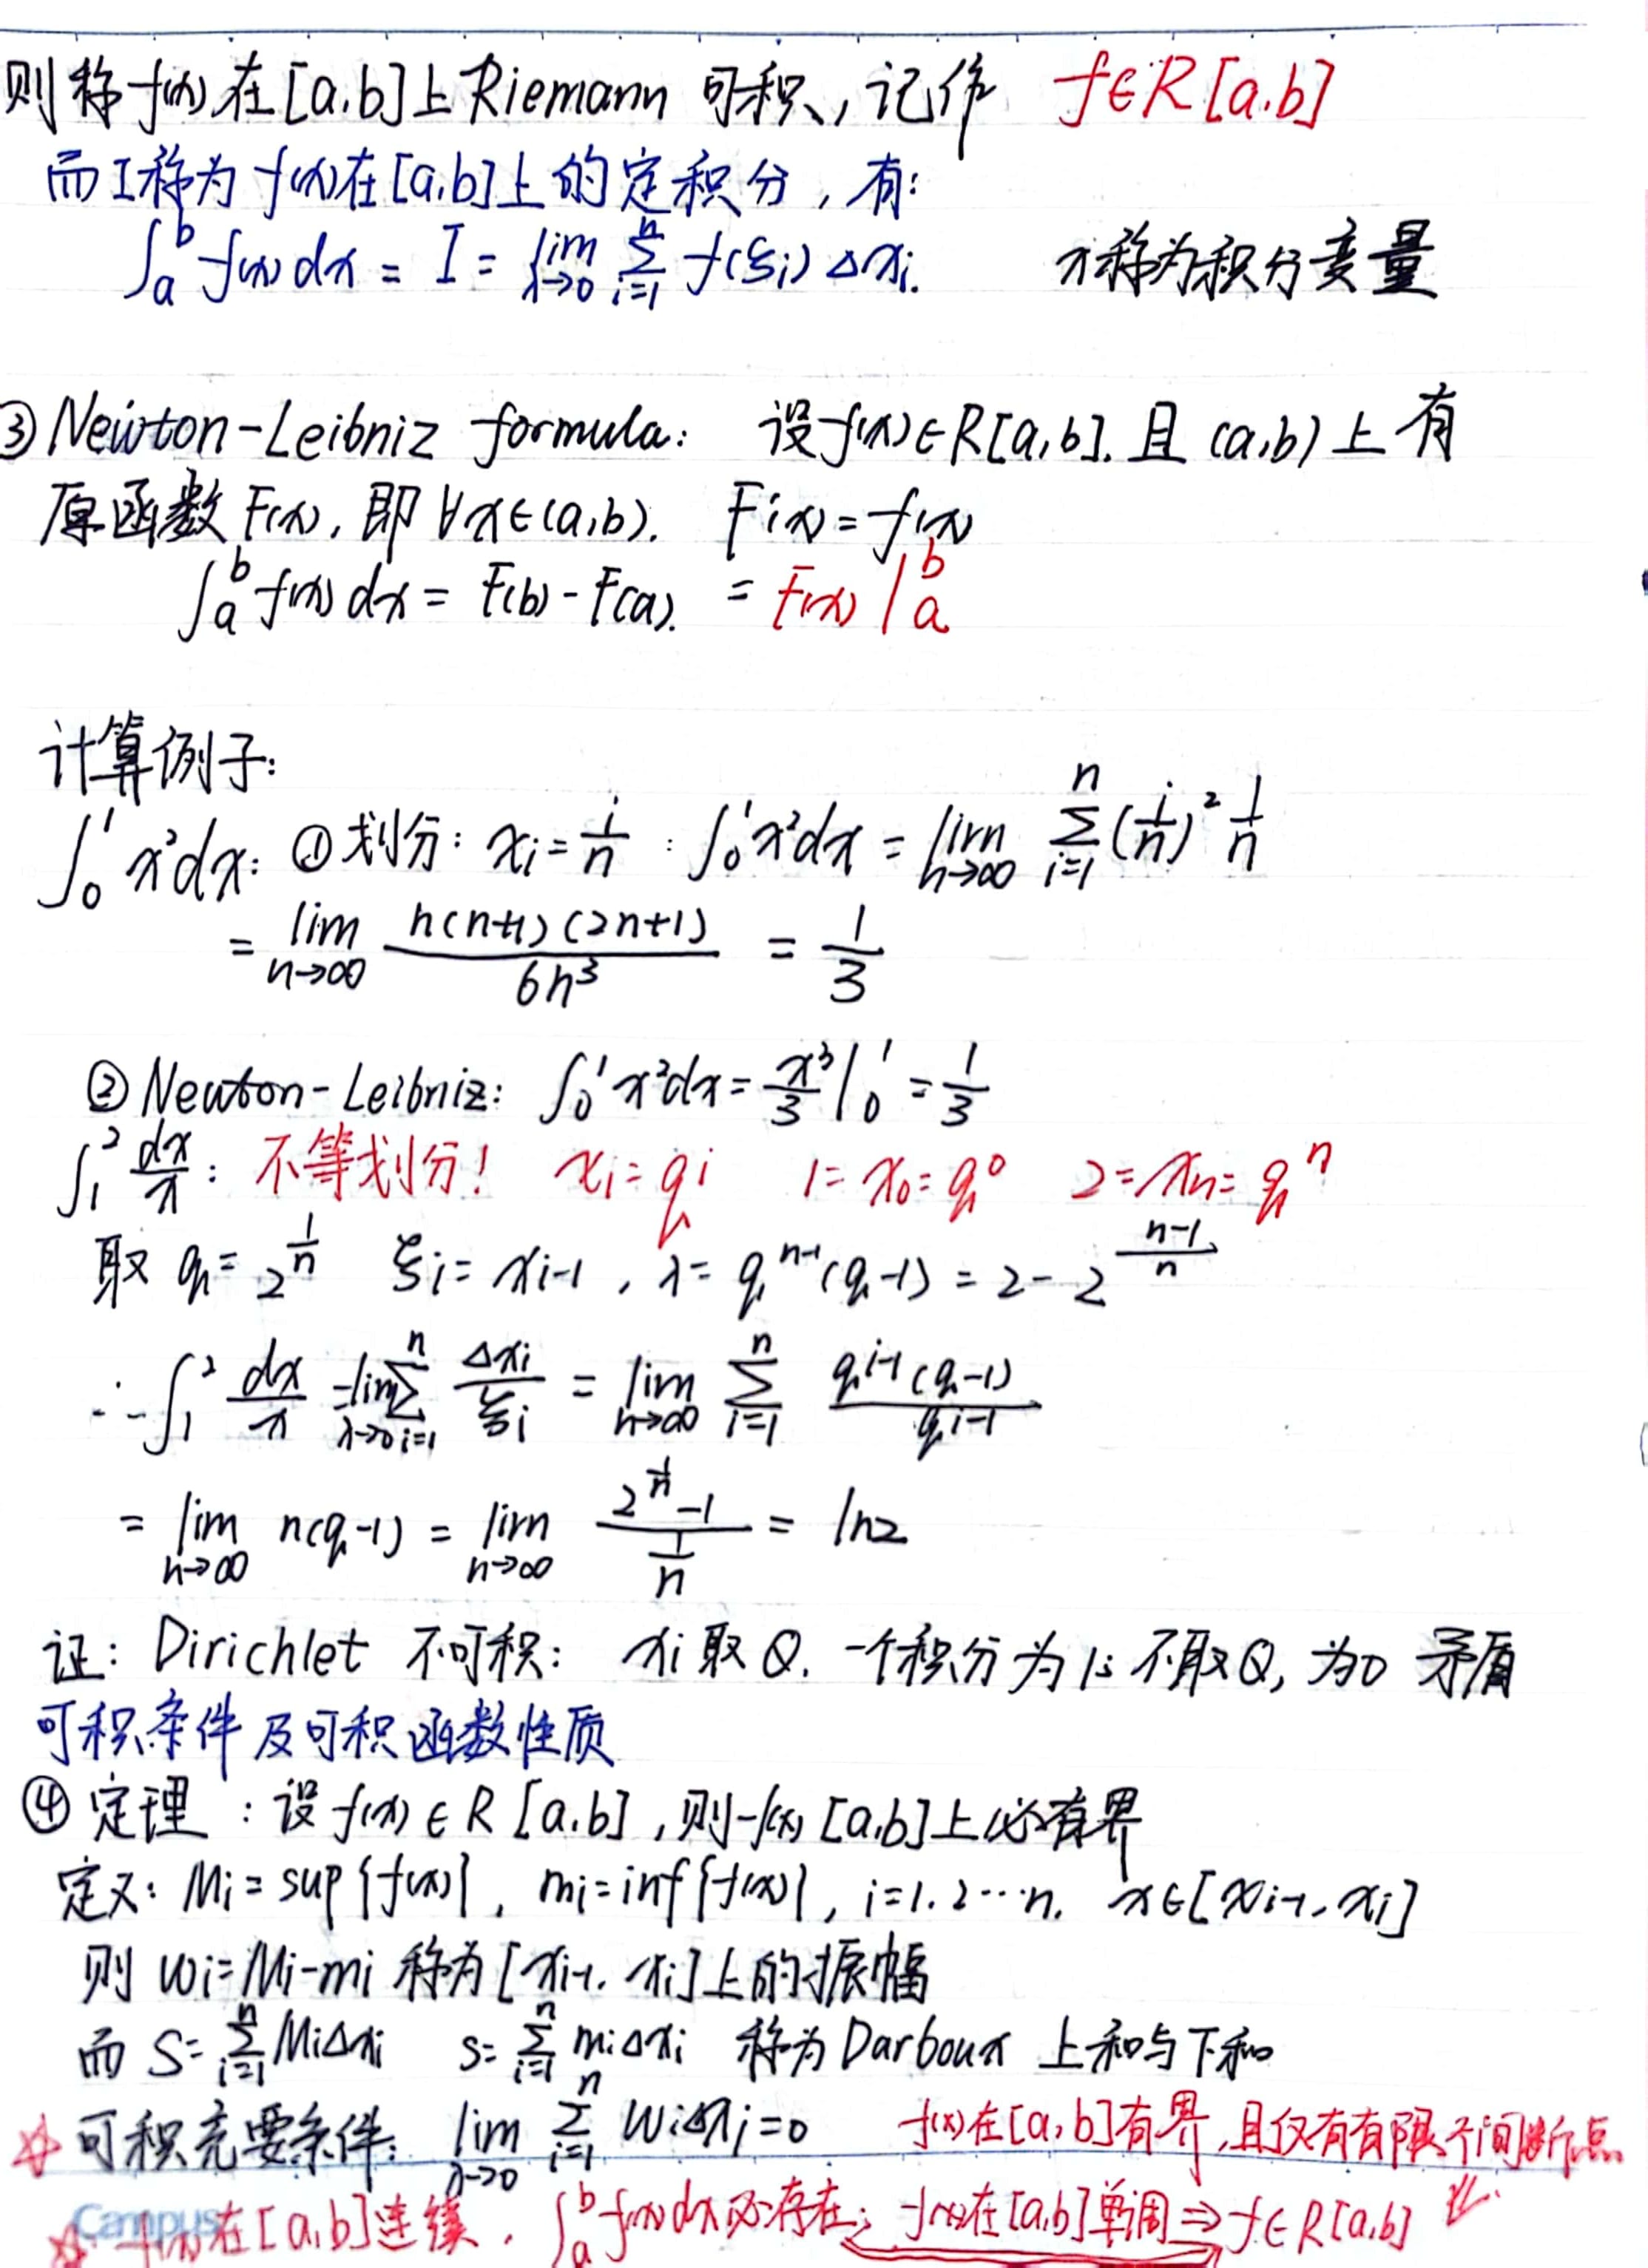 则称f(x)在[a,b]上Riemann 可积,记作 f∈R[a,b]
而I称为f(x)在[a,b]上的定积分,有:
∫_a^b f(x)dx = I = lim_{λ→0} ∑_{i=1}^n f(ξi)Δxi. x称为积分变量
③Newton-Leibniz formula: 设f(x)∈R[a,b].且(a,b)上有
原函数F(x),即∀x∈(a,b). F'(x)=f(x)
∫_a^b f(x)dx = F(b)-F(a). = F(x)|_a^b
计算例子:
∫_0^1 x²dx: ①划分: xi=i/n : ∫_0^1 x²dx = lim_{n→∞} ∑_{i=1}^n (i/n)² 1/n
= lim_{n→∞} n(n+1)(2n+1)/6n³ = 1/3
②Newton-Leibniz: ∫_0^1 x²dx = x³/3 |_0^1 = 1/3
∫_1^2 dx/x : 不等划分! xi=q^i 1=x0=q^0 2=xn=q^n
取 q=2^{1/n} ξi=xi-1, λ=q^{n-1}(q-1)=2-2^{(n-1)/n}
∴∫_1^2 dx/x = lim_{λ→0} ∑_{i=1}^n Δxi/ξi = lim_{n→∞} ∑_{i=1}^n q^{i-1}(q-1)/q^{i-1}
= lim_{n→∞} n(q-1) = lim_{n→∞} (2^{1/n}-1)/(1/n) = ln2
证: Dirichlet 不可积: xi取Q.一个积分为1; 不取Q,为0 矛盾
可积条件及可积函数性质
④定理:设f(x)∈R[a,b],则f(x)[a,b]上必有界
定义: Mi=sup{f(x)}, mi=inf{f(x)}, i=1.2…n. x∈[xi-1,xi]
则 wi=Mi-mi 称为[xi-1,xi]上的振幅
而 S=∑_{i=1}^n MiΔxi s=∑_{i=1}^n miΔxi 称为Darboux 上和与下和
☆可积充要条件: lim_{λ→0} ∑_{i=1}^n wiΔxi=0 f(x)在[a,b]有界,且仅有有限个间断点
Campus
☆f(x)在[a,b]连续, ∫_a^b f(x)dx必存在; f(x)在[a,b]单调⇒f∈R[a,b] ⇙